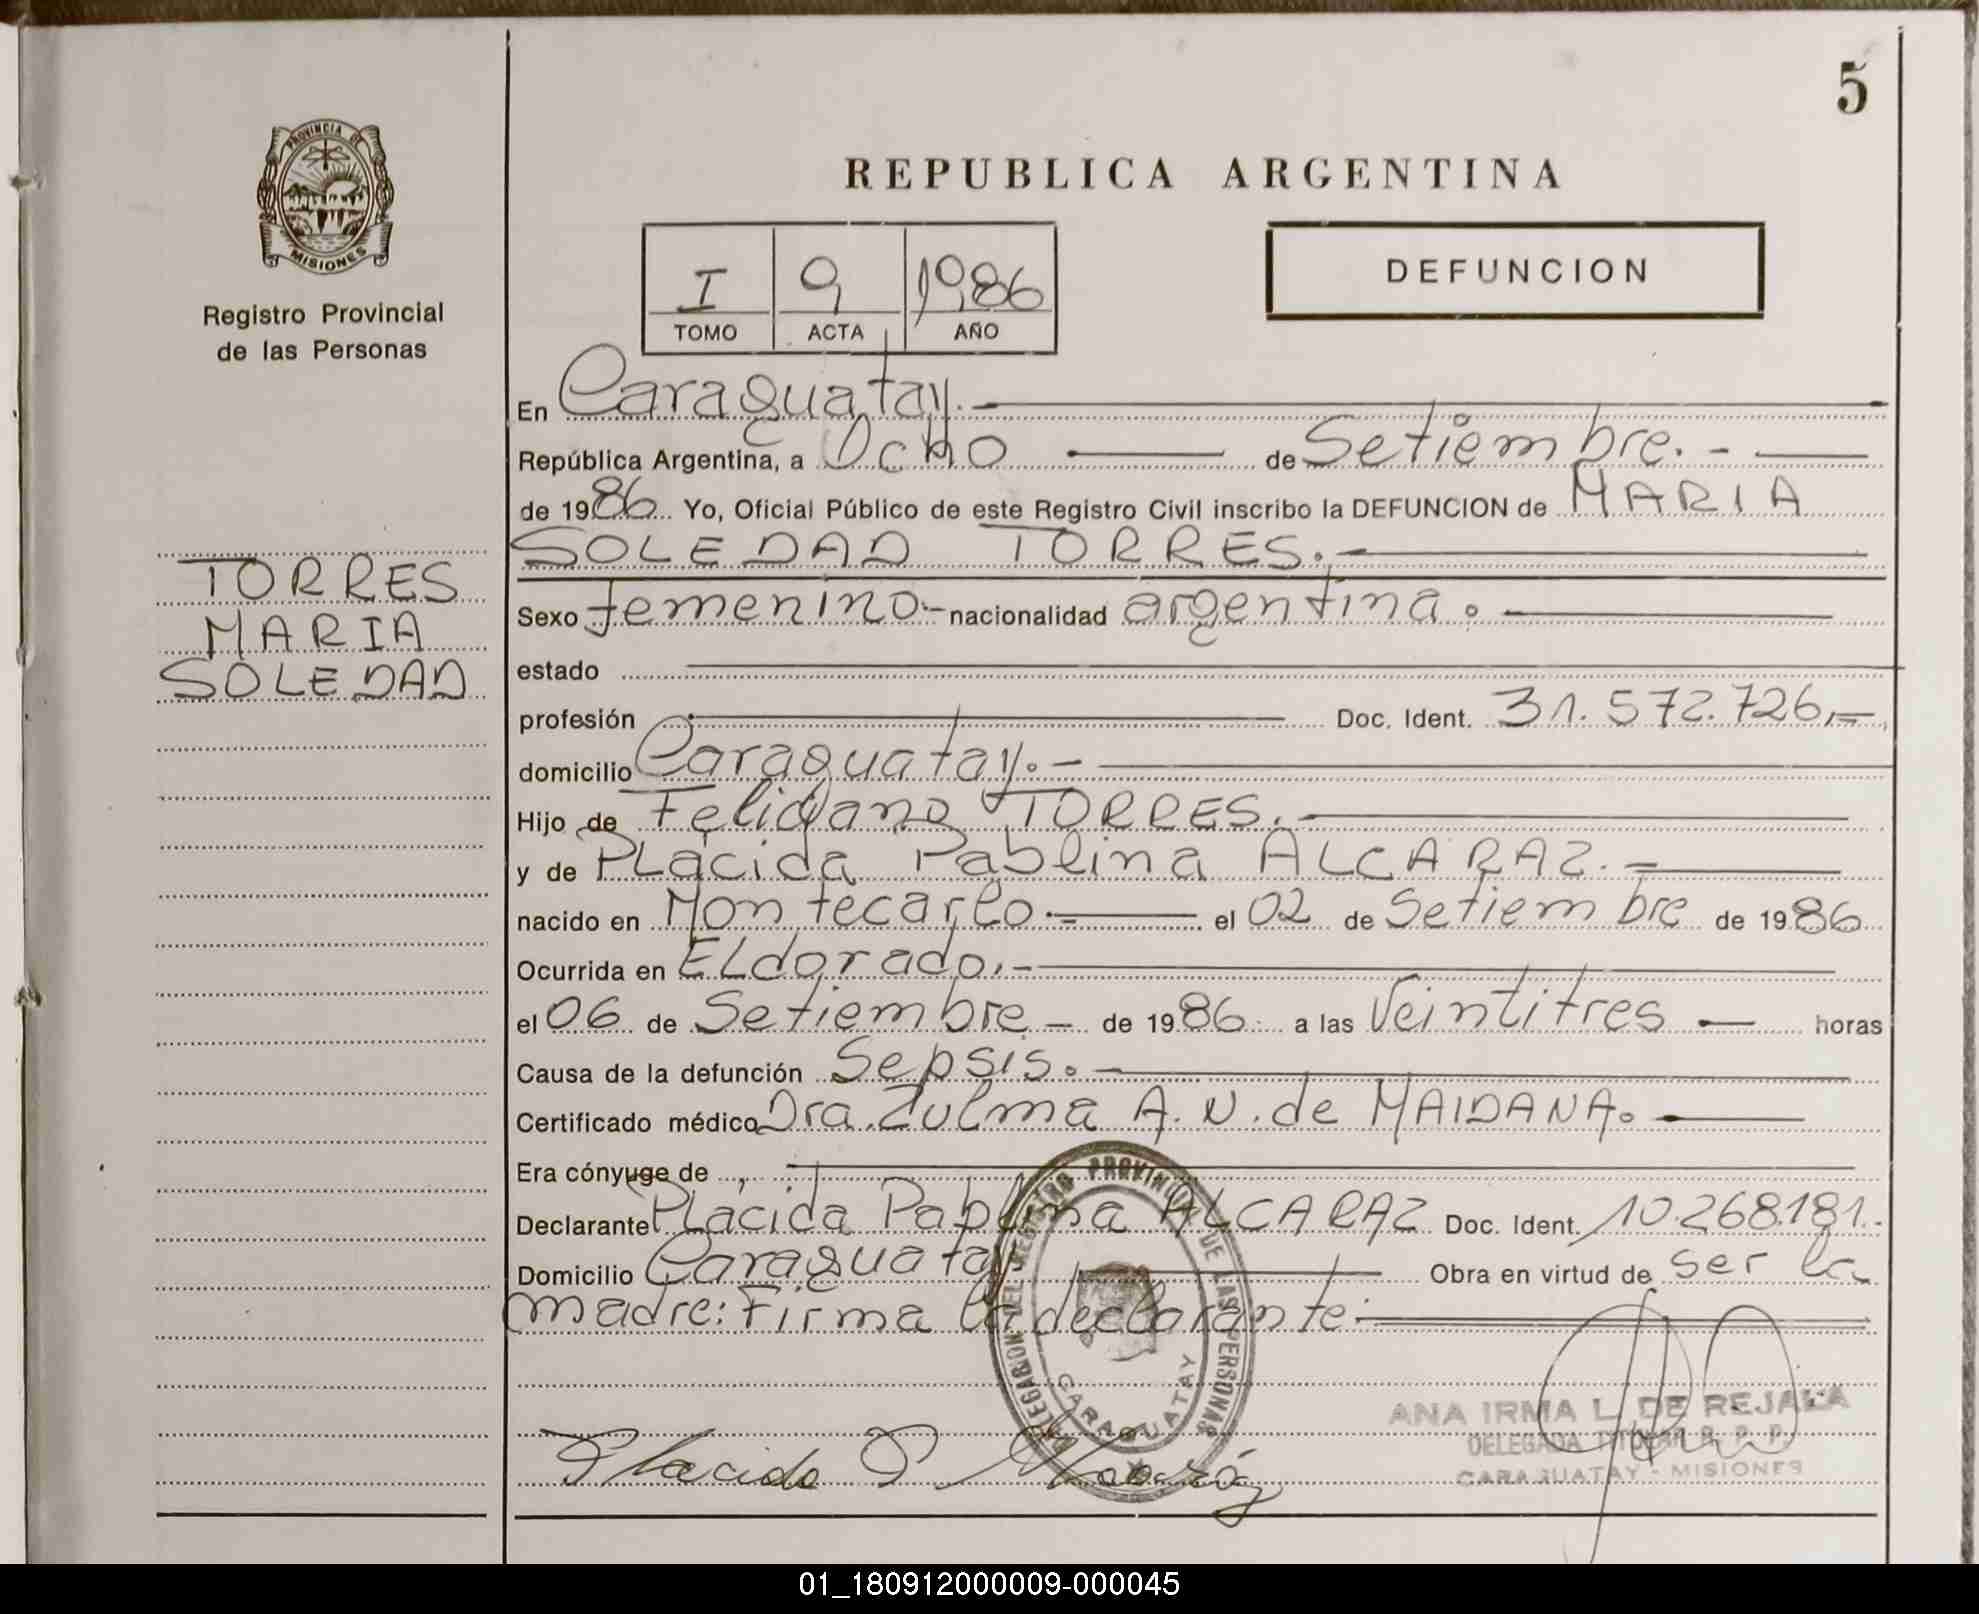 5
PROVINCIA DE
MISIONES
Registro Provincial
de las Personas
REPUBLICA ARGENTINA
I 9 1986
TOMO ACTA AÑO
DEFUNCION
En Caraguatay.-
República Argentina, a Ocho de Setiembre.-
de 1986 Yo, Oficial Público de este Registro Civil inscribo la DEFUNCION de MARIA
SOLEDAD TORRES.-
TORRES
MARIA
SOLEDAD
Sexo femenino.- nacionalidad argentina.
estado
profesión Doc. Ident. 31.572.726.-
domicilio Caraguatay.-
Hijo de Feliciano TORRES.
y de PLácida Pablina ALCARAZ.-
nacido en Montecarlo.- el 02 de Setiembre de 1986
Ocurrida en ELdorado.-
el 06 de Setiembre - de 1986 a las Veintitres - horas
Causa de la defunción Sepsis.-
Certificado médico Dra. Zulma A. N. de MAIDANA.
Era cónyuge de
Declarante PLácida Pablina ALCARAZ Doc. Ident. 10.268.181.-
Domicilio Caraguatay Obra en virtud de ser la
madre: Firma la declarante.
DELEGACION DEL REGISTRO PROVINCIAL DE LAS PERSONAS
CARAGUATAY
ANA IRMA L. DE REJALA
DELEGADA TITULAR R. P. P.
CARAGUATAY - MISIONES
Placida P
01_180912000009-000045